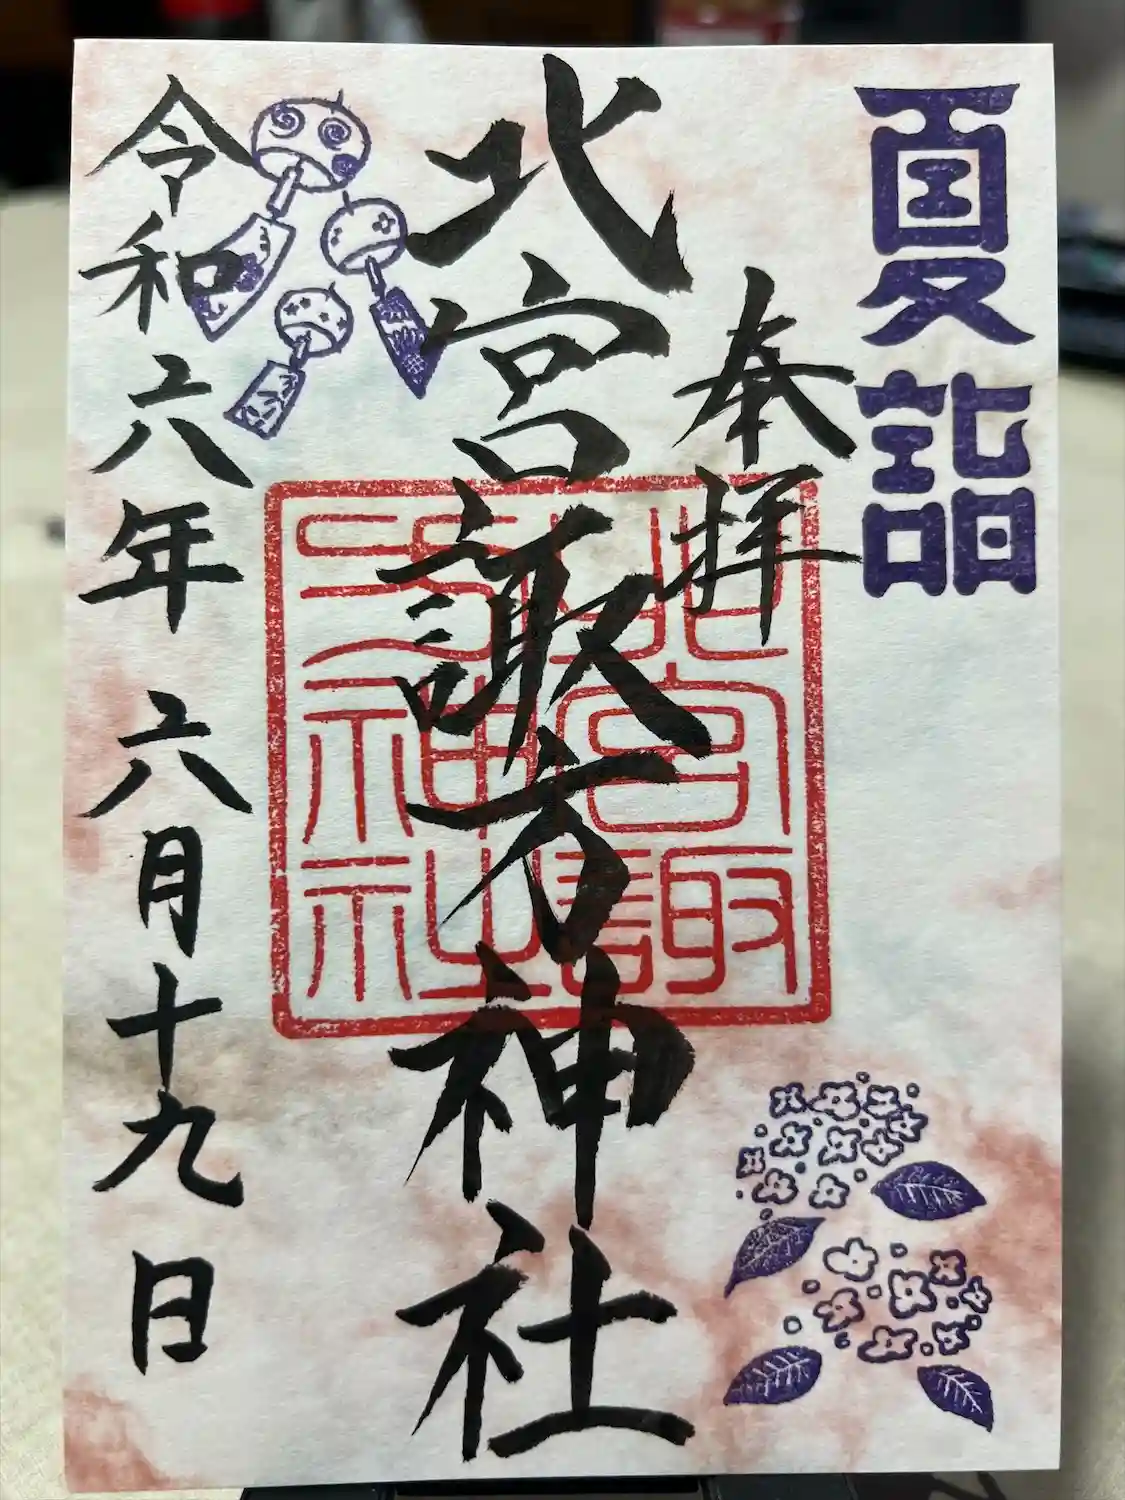 夏詣
奉拝
北宮諏方神社
北宮諏
方神社
令和六年六月十九日